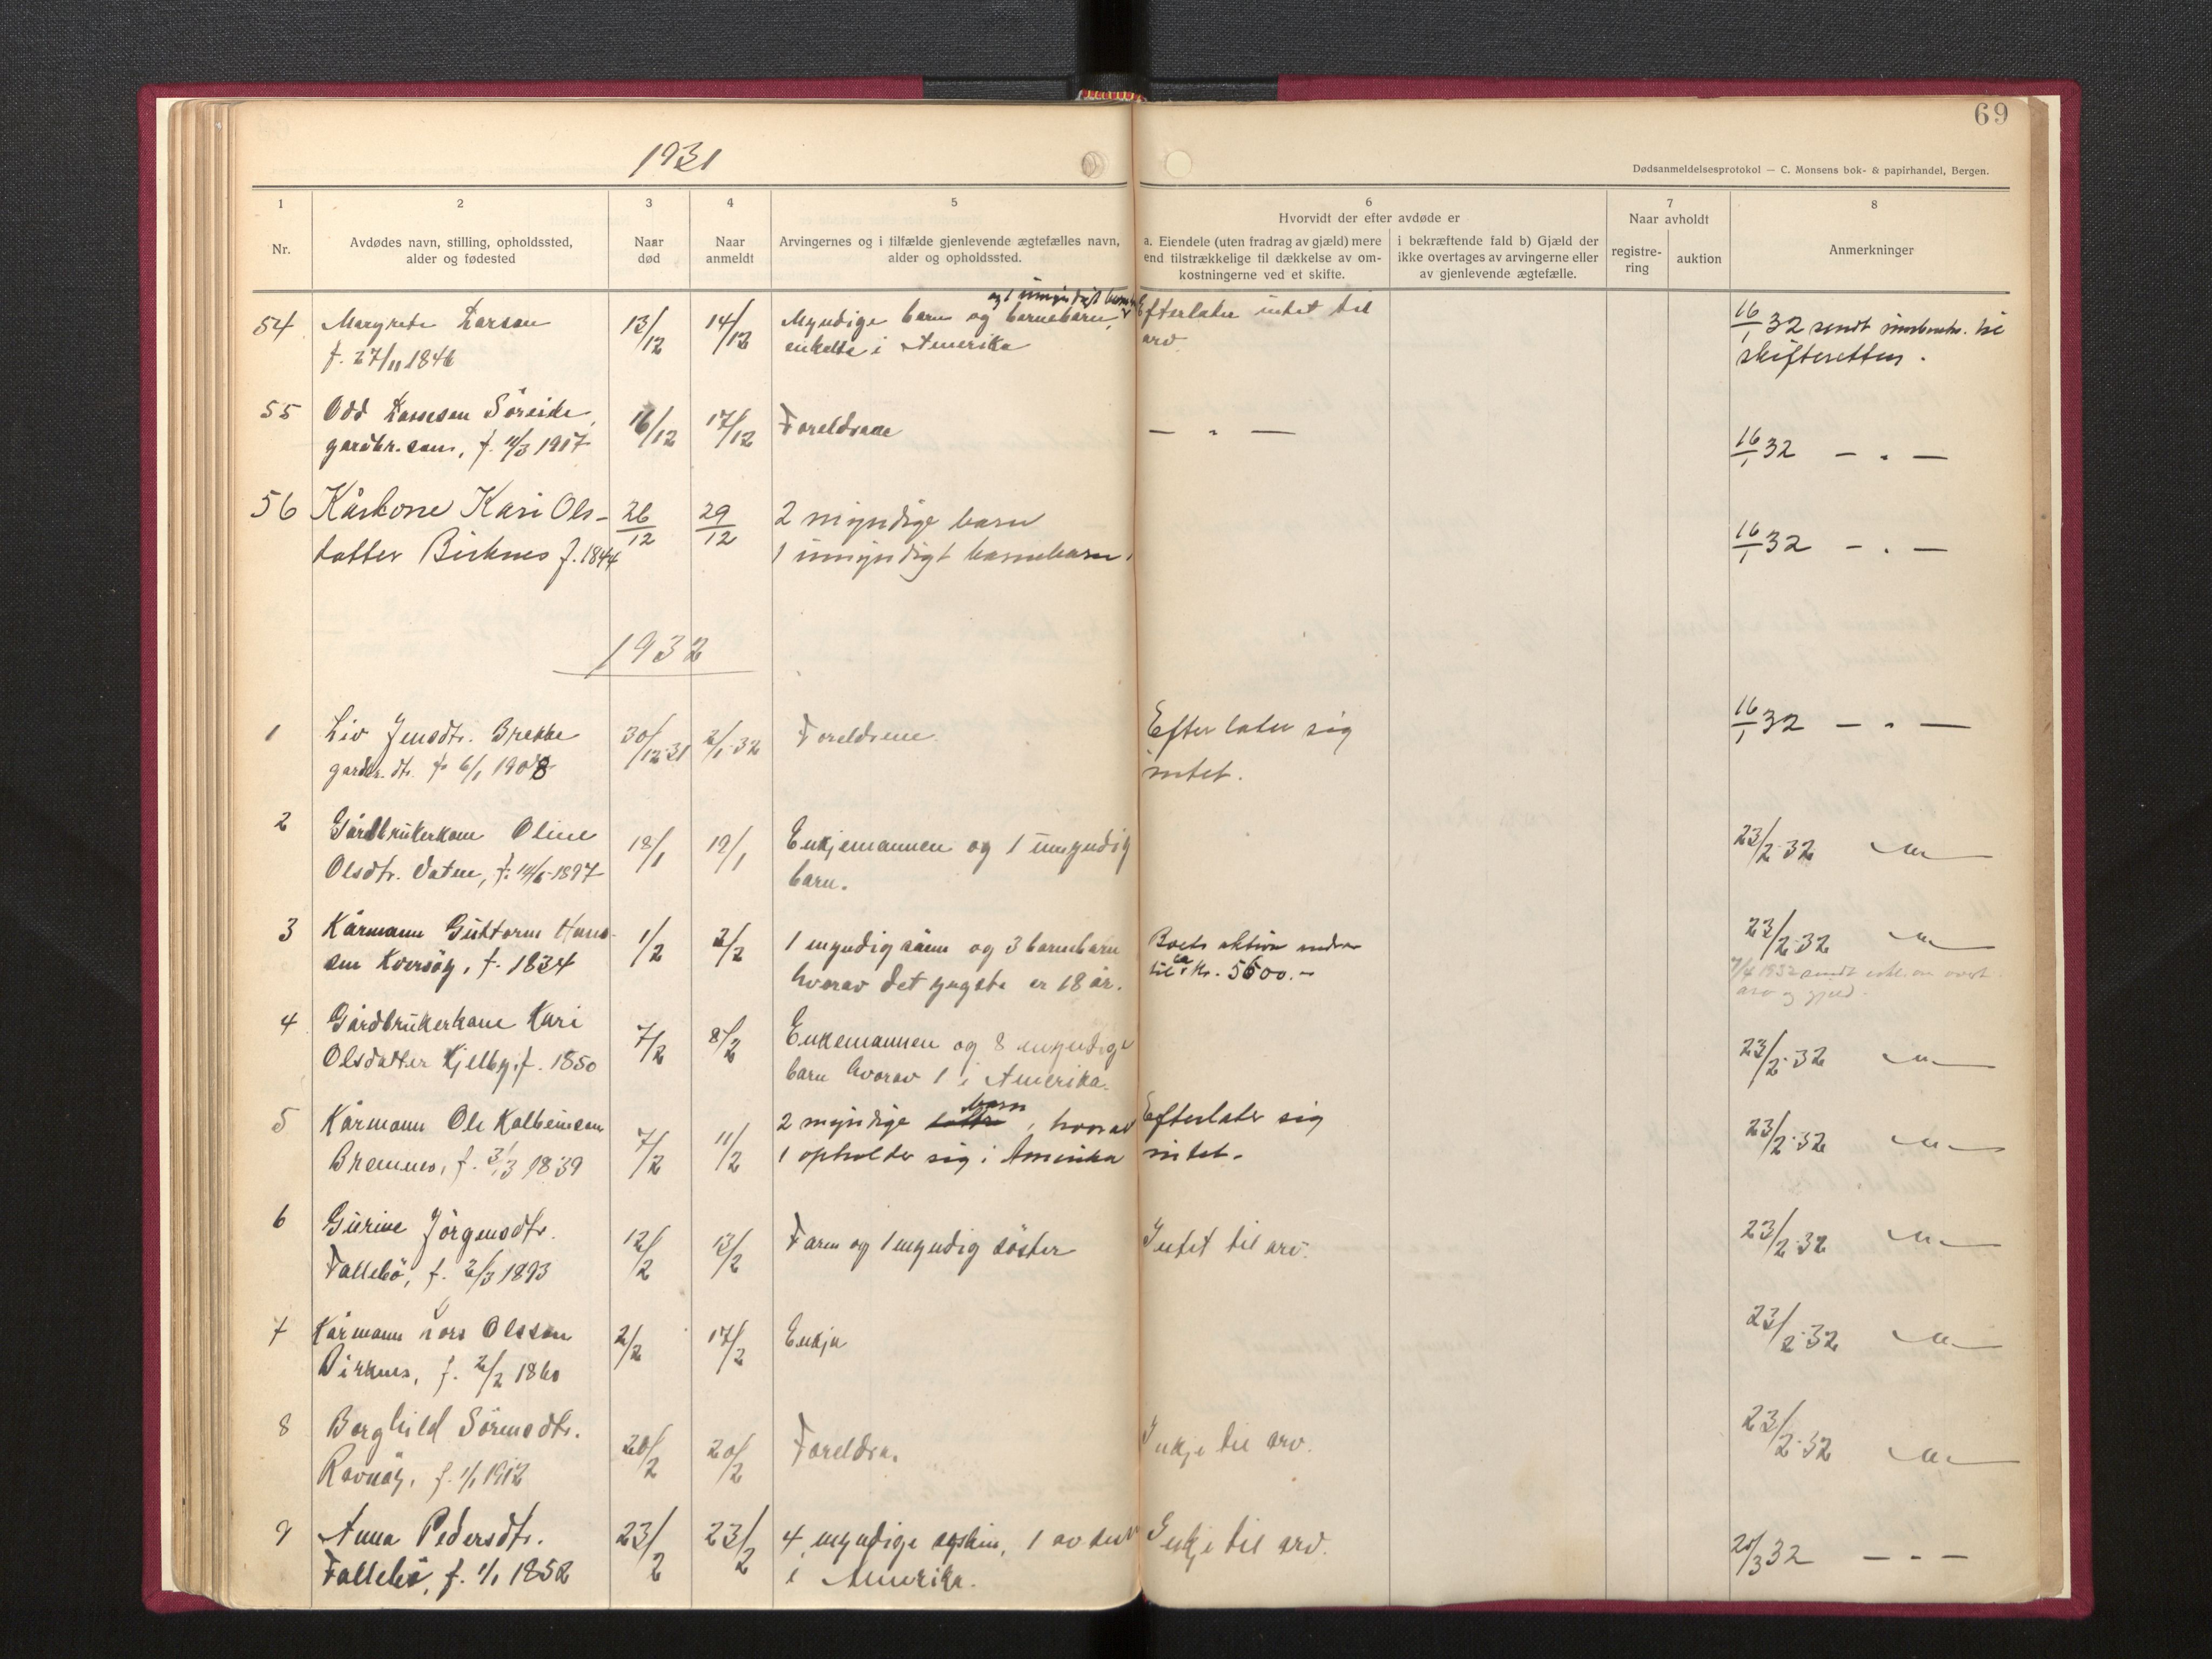 69
1931
Dødsanmeldelsesprotokol — C. Monsens bok- & papirhandel, Bergen.
1 2 3 4 5 6 7 8
Nr.
Avdødes navn, stilling, opholdssted,
alder og fødested
Naar
død
Naar
anmeldt
Arvingernes og i tilfælde gjenlevende ægtefælles navn,
alder og opholdssted.
Hvorvidt der efter avdøde er
a. Eiendele (uten fradrag av gjæld) mere
end tilstrækkelige til dækkelse av om-
kostningerne ved et skifte.
i bekræftende fald b) Gjæld der
ikke overtages av arvingerne eller
av gjenlevende ægtefælle.
Naar avholdt
registre-
ring
auktion
Anmerkninger
og 1 umyndigt barneb.
54 Margrete Larsen 13/12 14/12 Myndige barn og barnebarn, Efterlater intet til 16/1 32 sendt til
f. 27/11 1846 enkelte i Amerika arv. skifteretten.
55 Odd Larssen Söreide, 16/12 17/12 Foreldrene — " — 16/1 32 — " —
gardbr.sønn, f. 11/3 1917
56 Kårkone Kari Ols- 26/12 29/12 2 myndige barn 16/1 32 — " —
datter Birknes f. 1844 1 umyndigt barnebarn.
1932
1 Liv Jensdtr. Brekke 30/12-31 2/1-32 Foreldrene. Efterlater sig 16/1 32 — " —
gardbr. dtr. f. 6/1 1908 intet.
2 Gårdbrukerkone Oline 18/1 19/1 Enkjemannen og 1 umyndig 23/2-32 — " —
Olsdtr. Vatne, f. 14/6-1897 barn.
3 Kårmann Guttorm Hans- 1/2 2/2 1 myndig sönn og 3 barnebarn Boets aktiva 23/2-32 — " —
sen Kversöy, f. 1834 hvorav det yngste er 18 år. til ca kr. 5600.- 7/4 1932 sendt
arv og gjeld.
4 Gårdbrukerkone Kari 7/2 8/2 Enkemannen og 8 myndige 23/2-32 — " —
Olsdatter Kjelby, f. 1850 barn hvorav 1 i Amerika.
5 Kårmann Ole Kolbeinsen 7/2 11/2 2 myndige barn, hvorav Efterlater sig 23/2-32 — " —
Bremnes, f. 3/3 1839 1 opholder sig i Amerika intet.
6 Gurine Jörgensdtr. 12/2 13/2 Faren og 1 myndig söster Intet til arv. 23/2-32 — " —
Fallebö, f. 2/3 1893
7 Kårmann Lars Olsson 2/2 17/2 Enkja 23/2-32 — " —
Birknes, f. 2/2 1860
8 Borghild Sörensdtr. 20/2 20/2 Foreldra. Inkje til arv. 23/2-32 — " —
Ravnöy, f. 1/1 1912
9 Anna Pedersdtr. 23/2 23/2 4 myndige syskin, 1 av dei Inkje til arv. 20/3 32 — " —
Fallebö, f. 1/1 1852 i Amerika.